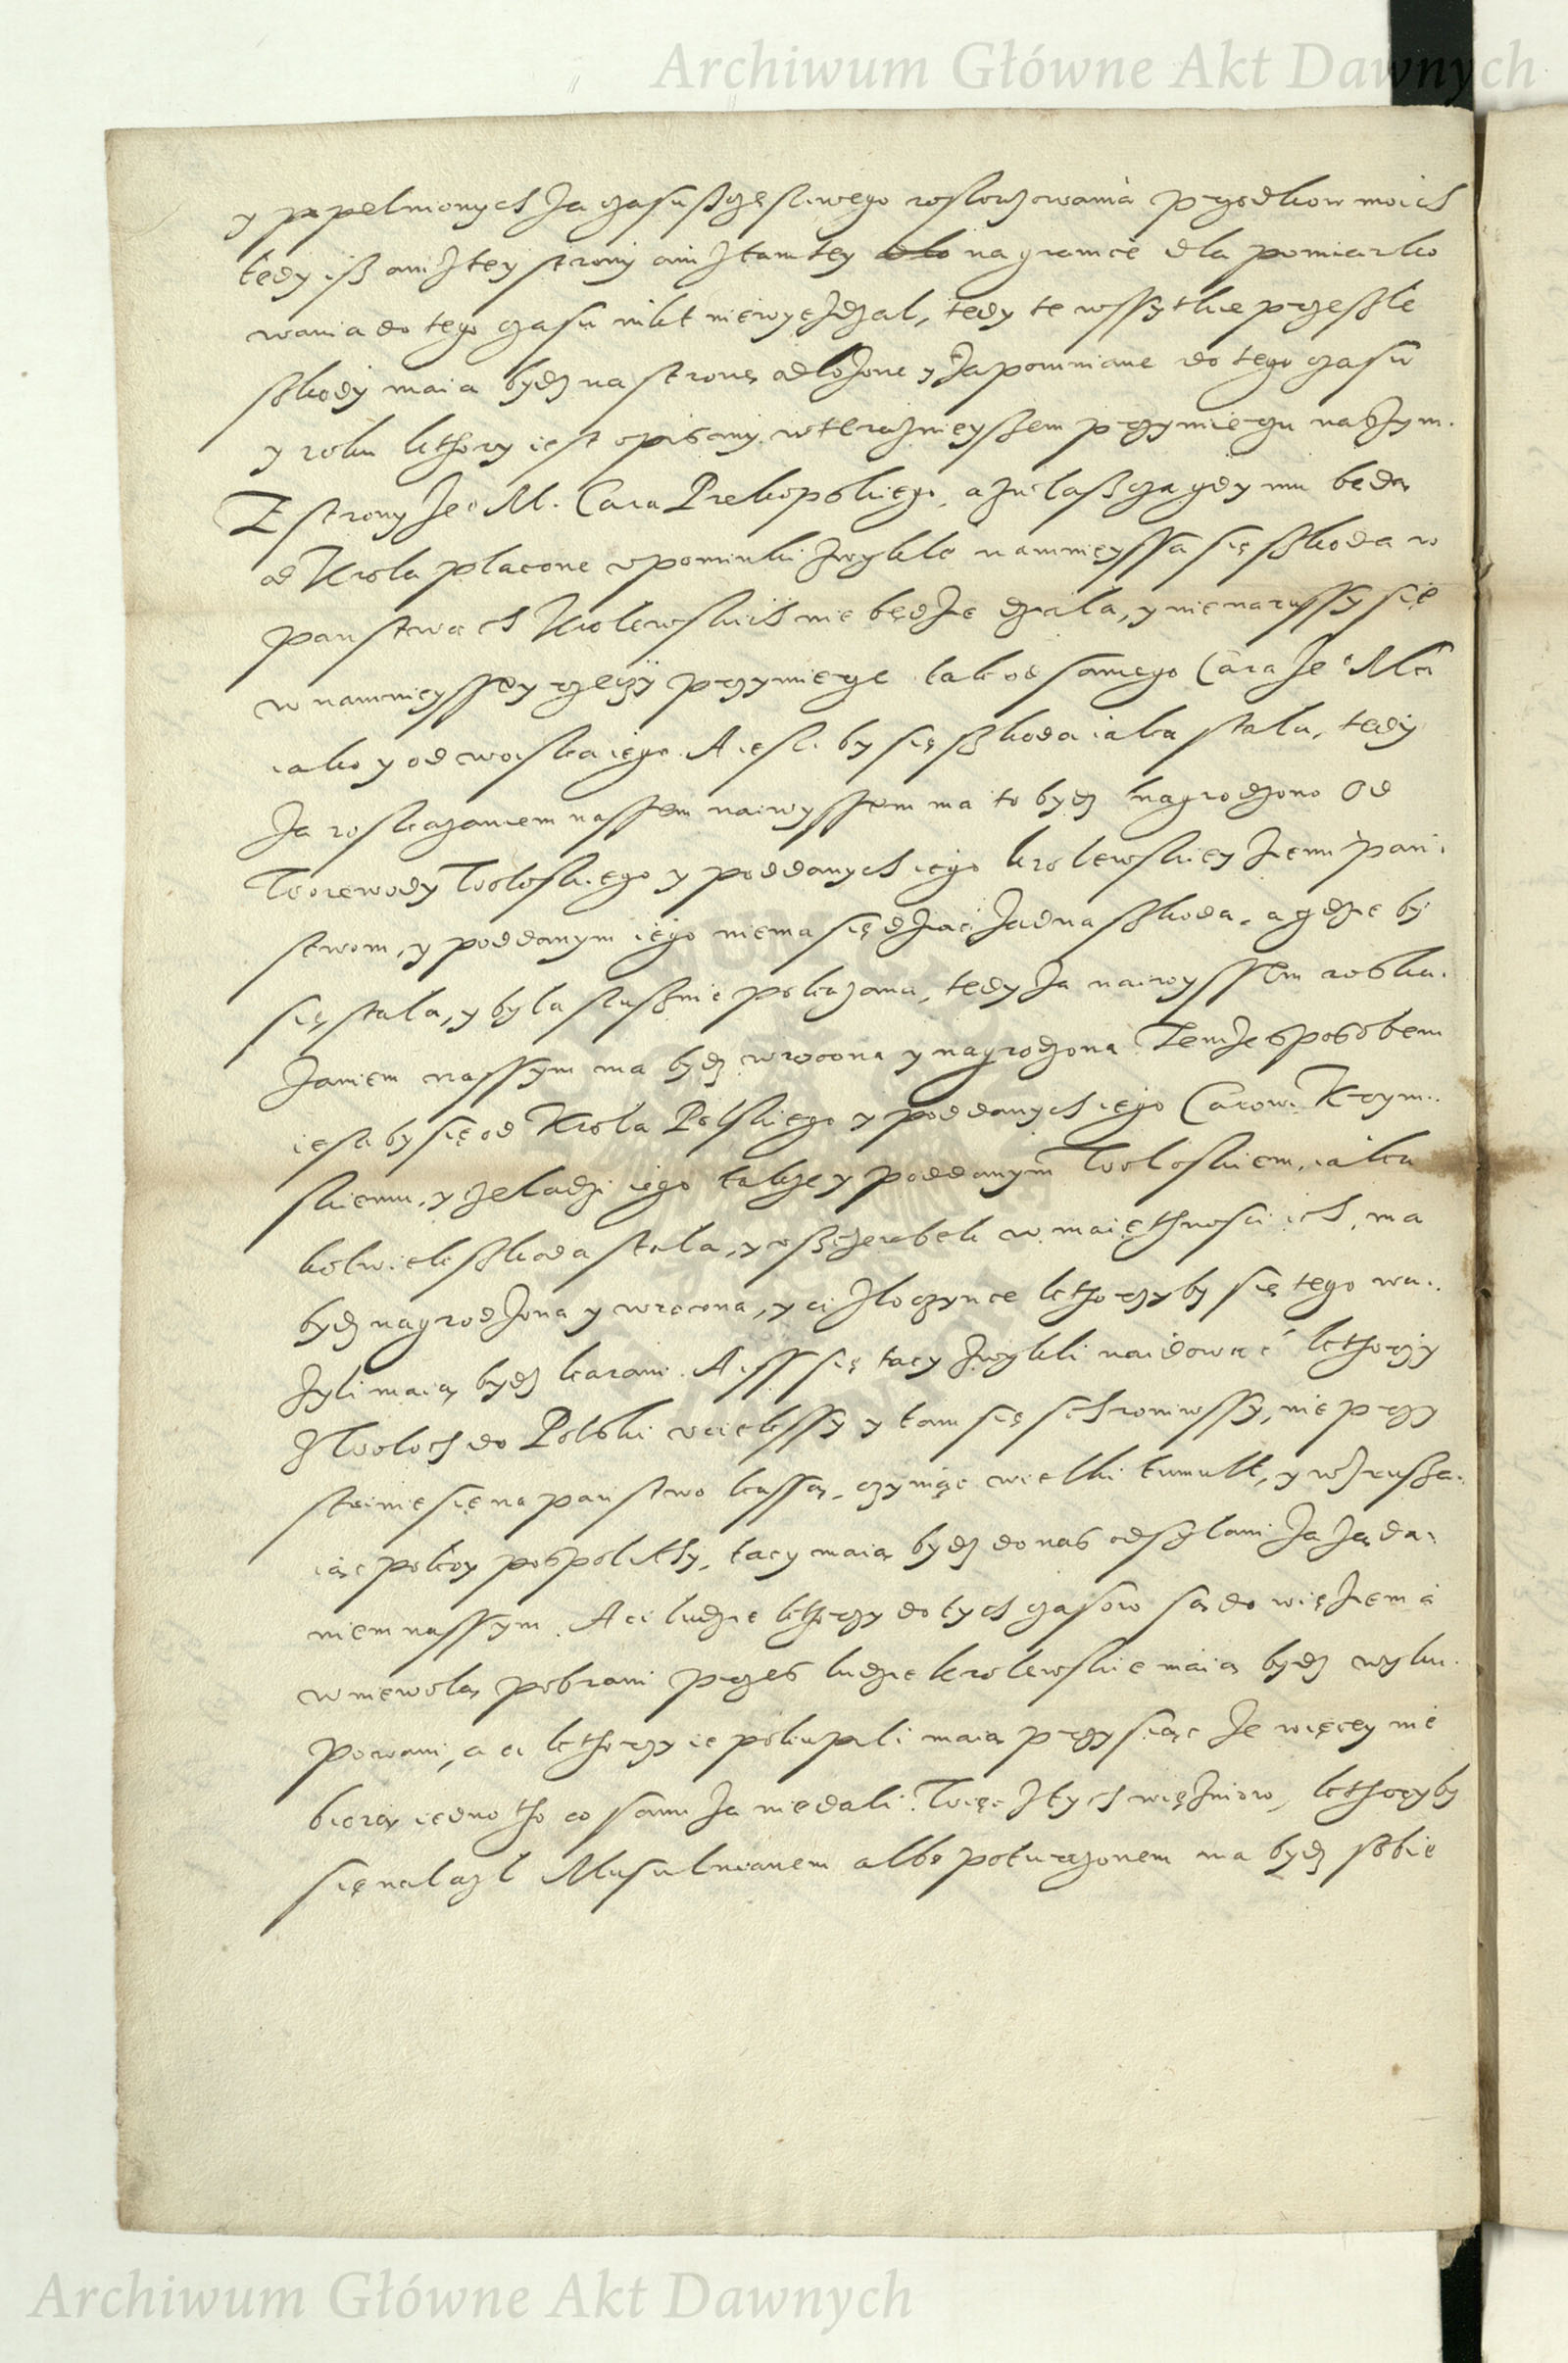 Archiwum Główne Akt Dawnych
y popelnionych za czasu sczęsliwego roskazowania przodkow moich
tedy isz ani z tey strony ani z tamtey na granice dla pomiarko
wania do tego czasu nikt niewyezdzal, tedy te wssytkie przeszle
szkody maia bydz na stronę odlozone y zapomniane do tego czasu
y roku kthory iest opisany w teraznieyszem przymierzu naszym.
Z strony Je° M. Cara Prekopskiego, a zwlaszcza gdy mu będą
od Krola placone upominki zwykle namnieyssa się szkoda w
panstwach Krolewskich nie będzie dziala, y nie narussy się
w namnieyssey rzeczy przymierze tak od samego Cara Je° Mci
iako y od woyska iego. A iesli by się szkoda iaka stala, tedy
za roskazaniem nassem naiwyssem ma to bydz nagrodzono Od
Woiewody Woloskiego y poddanych iego krolewskiey ziemi pan
stwom, y poddanym iego niema się dziać zadna szkoda, a gdzie by
się stala, y byla slusznie pokazana, tedy za naiwyssem roska.
zaniem nassym ma bydz wrocona y nagrodzona. Temze sposobem
iesli by się od Krola Polskiego y poddanych iego Carowi Krym..
skiemu, y czeladzi iego takze y poddanym Woloskiem, iaka
kolwiek szkoda stala, y uszczerbek w maięthnosci ich, ma
bydz nagrodzona y wrocona, y ci zloczynce kthorzy by się tego wa..
zyli maią bydz karani. A iss się tacy zwykli naidować kthorzy
z Woloch do Polski uciekssy y tam się schroniwssy, nie przy
stoinie się na panstwo kussą, czyniąc wielki tumult, y wzrusza.
iąc pokoy pospolithy, tacy maią bydz do nas odsylani za ząda.
niem nassym. A ci ludzie kthorzy do tych czasow są do więzienia
w niewolą pobrani przes ludzie krolewskie maią bydz wyku.
powani, a ci kthorzy ie pokupili maią przysiąc ze więcey nie
biorą iedno tho co sami za nie dali. Więc z tych więzniow, kthoryby
się nalazl Musulmanem albo poturczonem ma bydz sobie
Archiwum Główne Akt Dawnych